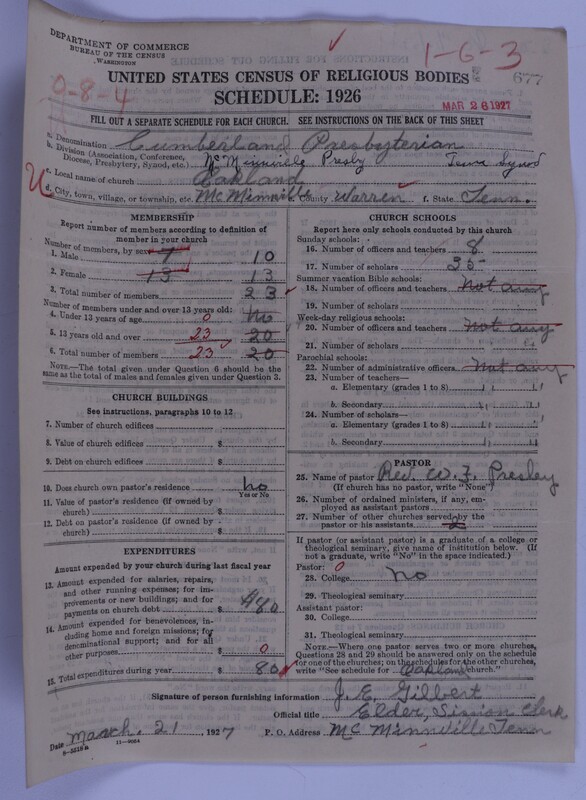 DEPARTMENT OF COMMERCE
BUREAU OF THE CENSUS
WASHINGTON
1-6-3
0-8-4
677
UNITED STATES CENSUS OF RELIGIOUS BODIES
SCHEDULE: 1926
MAR 26 1927
FILL OUT A SEPARATE SCHEDULE FOR EACH CHURCH. SEE INSTRUCTIONS ON THE BACK OF THIS SHEET
a. Denomination Cumberland Presbyterian
b. Division (Association, Conference, Diocese, Presbytery, Synod, etc.) McMinnville Presby Tenn Synod
c. Local name of church Oakland
d. City, town, village, or township, etc. McMinnville e. County Warren f. State Tenn.
U
MEMBERSHIP
Report number of members according to definition of member in your church
Number of members, by sex:
1. Male 7 10
2. Female 13 13
3. Total number of members 23
Number of members under and over 13 years old:
4. Under 13 years of age 0 no
5. 13 years old and over 23 20
6. Total number of members 23 20
NOTE.—The total given under Question 6 should be the same as the total of males and females given under Question 3.
CHURCH BUILDINGS
See instructions, paragraphs 10 to 12
7. Number of church edifices
8. Value of church edifices $
9. Debt on church edifices $
10. Does church own pastor's residence? no
Yes or No
11. Value of pastor's residence (if owned by church) $
12. Debt on pastor's residence (if owned by church) $
EXPENDITURES
Amount expended by your church during last fiscal year
13. Amount expended for salaries, repairs, and other running expenses; for improvements or new buildings; and for payments on church debt $80
14. Amount expended for benevolences, including home and foreign missions; for denominational support; and for all other purposes $ 0
15. Total expenditures during year $ 80
CHURCH SCHOOLS
Report here only schools conducted by this church
Sunday schools:
16. Number of officers and teachers 8
17. Number of scholars 35
Summer vacation Bible schools:
18. Number of officers and teachers not any
19. Number of scholars
Week-day religious schools:
20. Number of officers and teachers not any
21. Number of scholars
Parochial schools:
22. Number of administrative officers not any
23. Number of teachers—
a. Elementary (grades 1 to 8)
b. Secondary
24. Number of scholars—
a. Elementary (grades 1 to 8)
b. Secondary
PASTOR
25. Name of pastor Rev. W. F. Presley
(If church has no pastor, write "None")
26. Number of ordained ministers, if any, employed as assistant pastors
27. Number of other churches served by the pastor or his assistants
If pastor (or assistant pastor) is a graduate of a college or theological seminary, give name of institution below. (If not a graduate, write "No" in the space indicated.)
Pastor: 0
28. College no
29. Theological seminary
Assistant pastor:
30. College
31. Theological seminary
NOTE.—Where one pastor serves two or more churches, Questions 28 and 29 should be answered only on the schedule for one of the churches; on the schedules for the other churches, write "See schedule for Oakland church."
Signature of person furnishing information J. E. Gilbert
Official title Elder, Session Clerk
Date March. 21, 1927 P. O. Address McMinnville Tenn